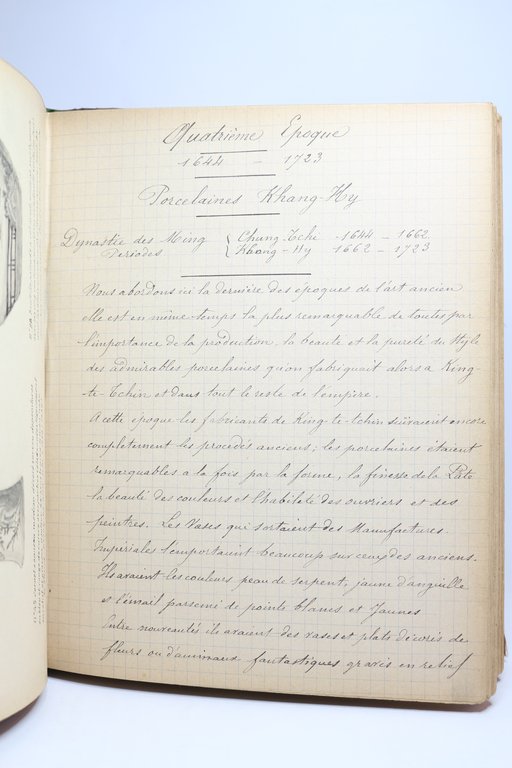 Quatrième Epoque
1644 - 1723
Porcelaines Khang-Hy
Dynastie des Ming { Chung-Tchi 1644 - 1662
Periodes Khang-Hy 1662 - 1723
Nous abordons ici la dernière des époques de l'art ancien
elle est en même temps la plus remarquable de toutes, par
l'importance de la production, la beauté et la pureté du style
des admirables porcelaines qu'on fabriquait alors a King-
te-Tchin et dans tout le reste de l'empire.
A cette époque les fabricants de King-te-tchin suivaient encore
completement les procédés anciens; les porcelaines étaient
remarquables a la fois par la forme, la finesse de la Pate
la beauté des couleurs et l'habileté des ouvriers et des
peintres. Les Vases qui sortaient des Manufactures
Impériales l'emportaient beaucoup sur ceux des anciens.
Ils avaient les couleurs peau de serpent, jaune d'anguille
et l'émail parsemé de points blancs et Jaunes
Entre nouveautés ils avaient des vases et plats décorés de
fleurs ou d'animaux fantastiques gravés en relief